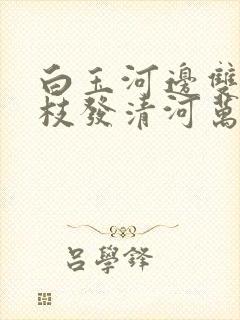 白玉河邊雙
枝發清河萬
呂學鋒